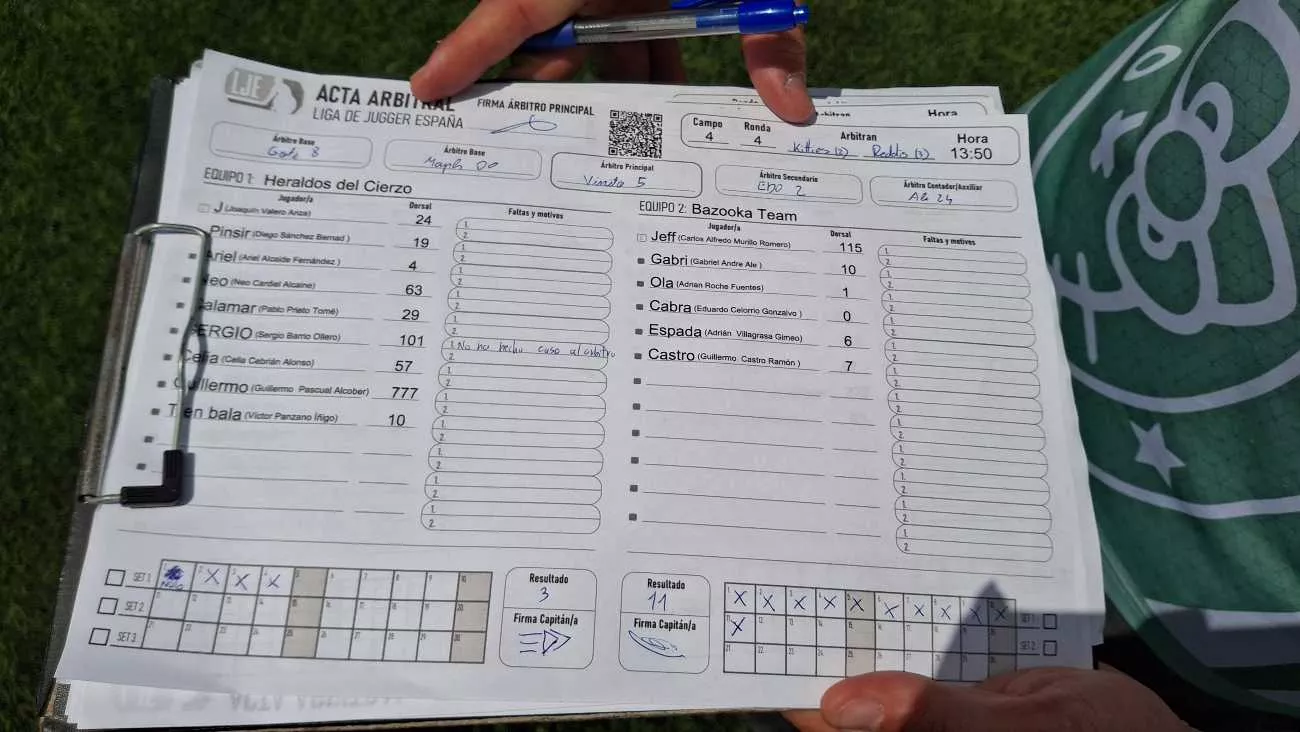 LJE
ACTA ARBITRAL
LIGA DE JUGGER ESPAÑA
FIRMA ÁRBITRO PRINCIPAL
Campo Ronda Arbitran Hora
4 4 Kitties (2) (3) 13:50
Árbitro Base
8
Árbitro Base
Árbitro Principal
5
Árbitro Secundario
EDO 2
Árbitro Contador/Auxiliar
24
EQUIPO 1: Heraldos del Cierzo
Jugador/a Dorsal Faltas y motivos
J (Joaquin Valero Anza) 24
Pinsir (Diego Sánchez Bernad ) 19
Ariel (Ariel Alcaide Fernández ) 4
Neo (Neo Cardiel Alcaine) 63
Calamar (Pablo Prieto Tomé) 29
SERGIO (Sergio Barrio Ollero) 101 1. No ha hecho caso al arbitro
Celia (Celia Cebrián Alonso) 57
Guillermo (Guillermo Pascual Alcober) 777
Ten bala (Victor Panzano Íñigo) 10
EQUIPO 2: Bazooka Team
Jugador/a Dorsal Faltas y motivos
Jeff (Carlos Alfredo Murillo Romero) 115
Gabri (Gabriel Andre Ale ) 10
Ola (Adrian Roche Fuentes) 1
Cabra (Eduardo Celorrio Gonzalvo ) 0
Espada (Adrián Villagrasa Gimeo) 6
Castro (Guillermo Castro Ramón ) 7
SET 1 X X X
SET 2
SET 3
Resultado
3
Firma Capitán/a
Resultado
11
Firma Capitán/a
X X X X X X X X X X SET 1
X SET 2